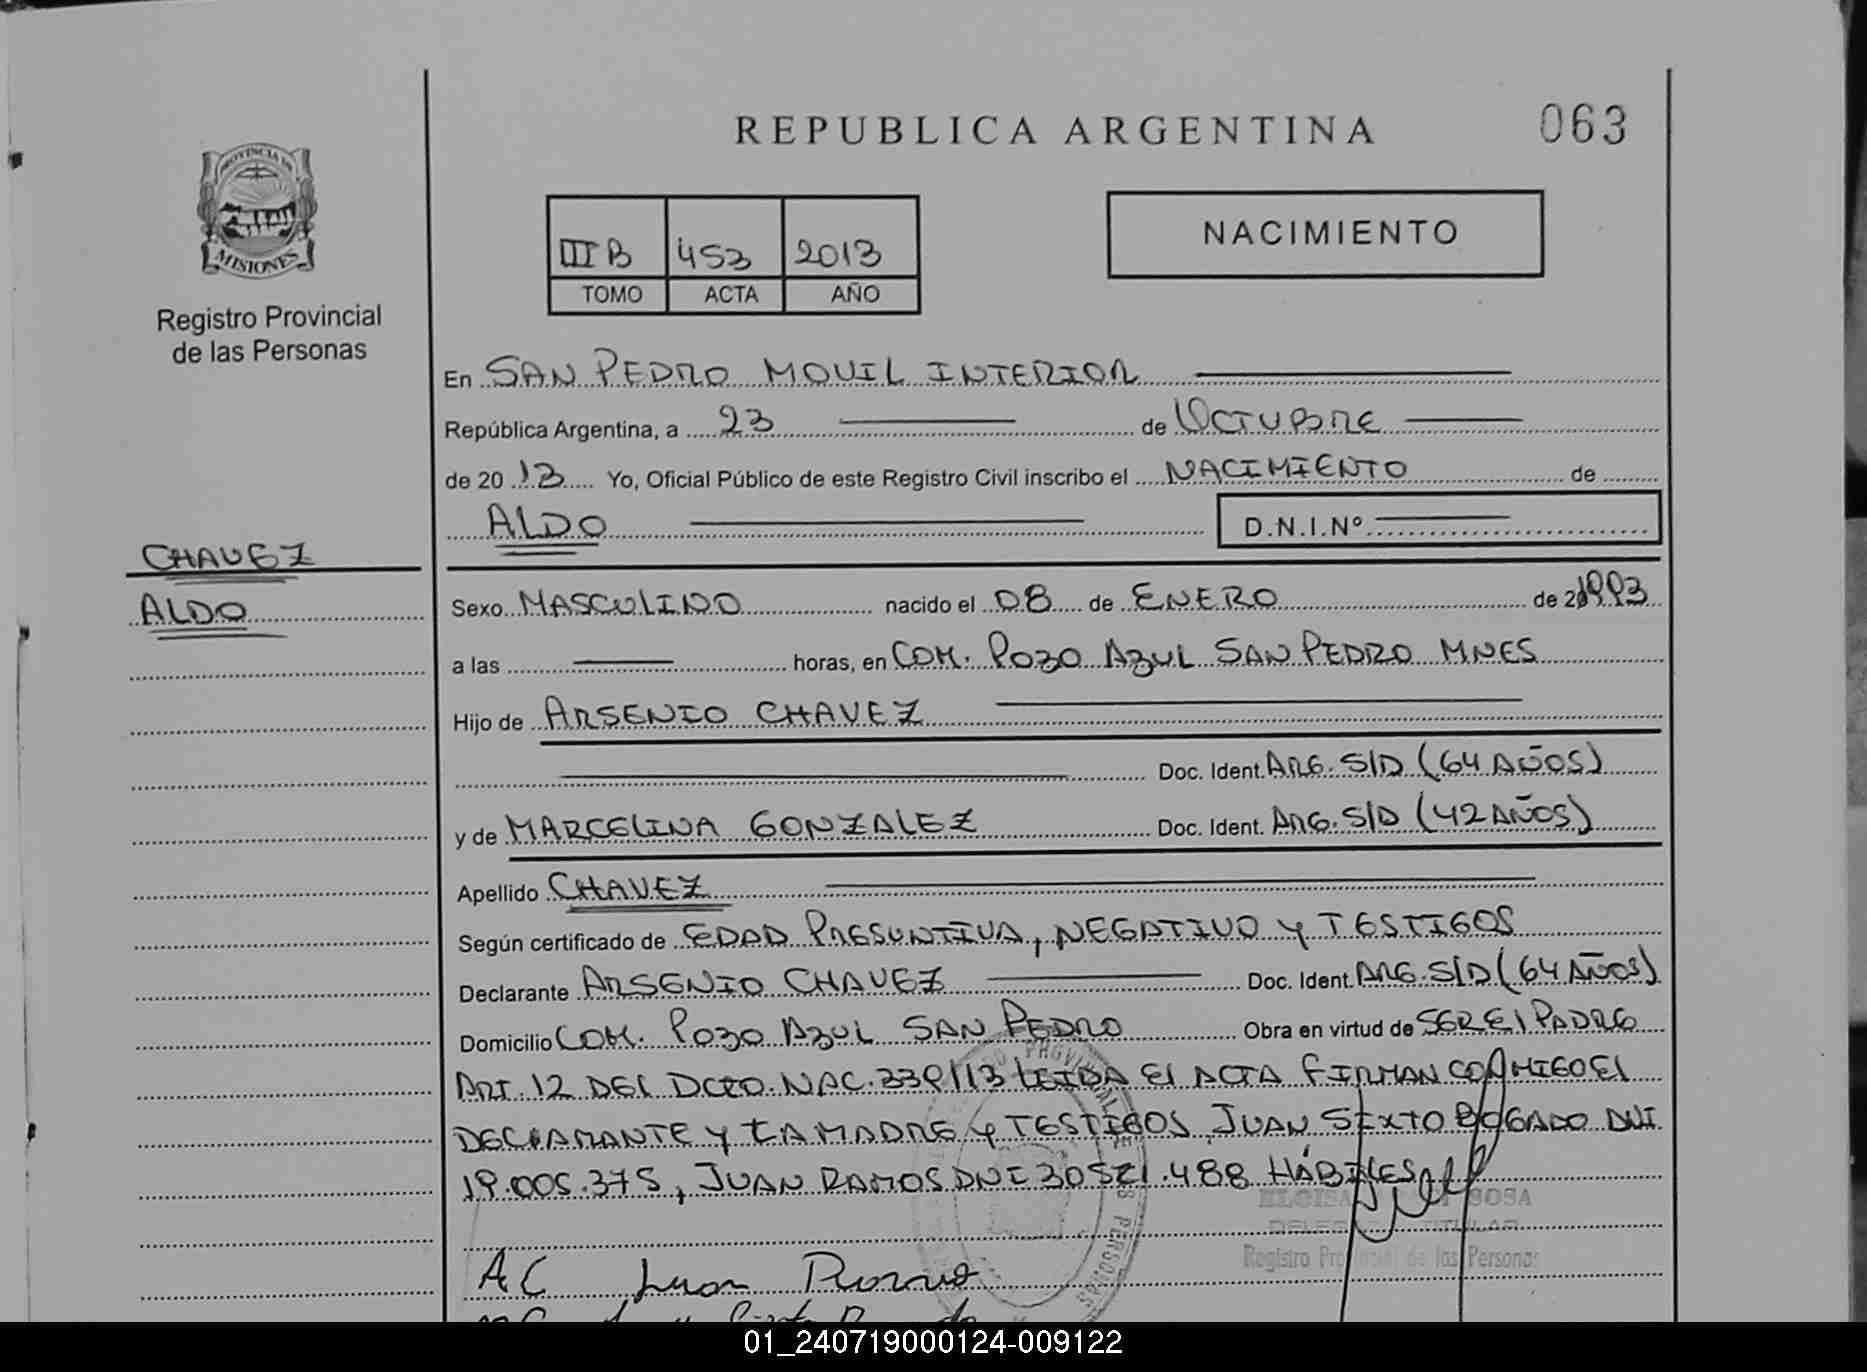 REPUBLICA ARGENTINA
063
PROVINCIA DE
MISIONES
Registro Provincial
de las Personas
III B 453 2013
TOMO ACTA AÑO
NACIMIENTO
En SAN PEDRO MOVIL INTERIOR
República Argentina, a 23 de OCTUBRE
de 20 13 Yo, Oficial Público de este Registro Civil inscribo el NACIMIENTO de
ALDO D.N.I.Nº
CHAVEZ
ALDO
Sexo MASCULINO nacido el 08 de ENERO de 1993
a las horas, en COM. POZO AZUL SAN PEDRO MNES
Hijo de ARSENIO CHAVEZ
Doc. Ident. ARG. S/D (64 AÑOS)
y de MARCELINA GONZALEZ Doc. Ident. ARG. S/D (42 AÑOS)
Apellido CHAVEZ
Según certificado de EDAD PRESUNTIVA, NEGATIVO Y TESTIGOS
Declarante ARSENIO CHAVEZ Doc. Ident. ARG. S/D (64 AÑOS)
Domicilio COM. POZO AZUL SAN PEDRO Obra en virtud de SER EL PADRE
ART. 12 DEL DCTO. NAC. 339/13 LEIDA EL ACTA FIRMAN CONMIGO EL
DECLARANTE Y LA MADRE Y TESTIGOS JUAN SIXTO BOGADO DNI
19.005.375, JUAN RAMOS DNI 30521.488 HÁBILES
SOSA
TITULAR
Registro Provincial de las Personas
AC Juan
01_240719000124-009122